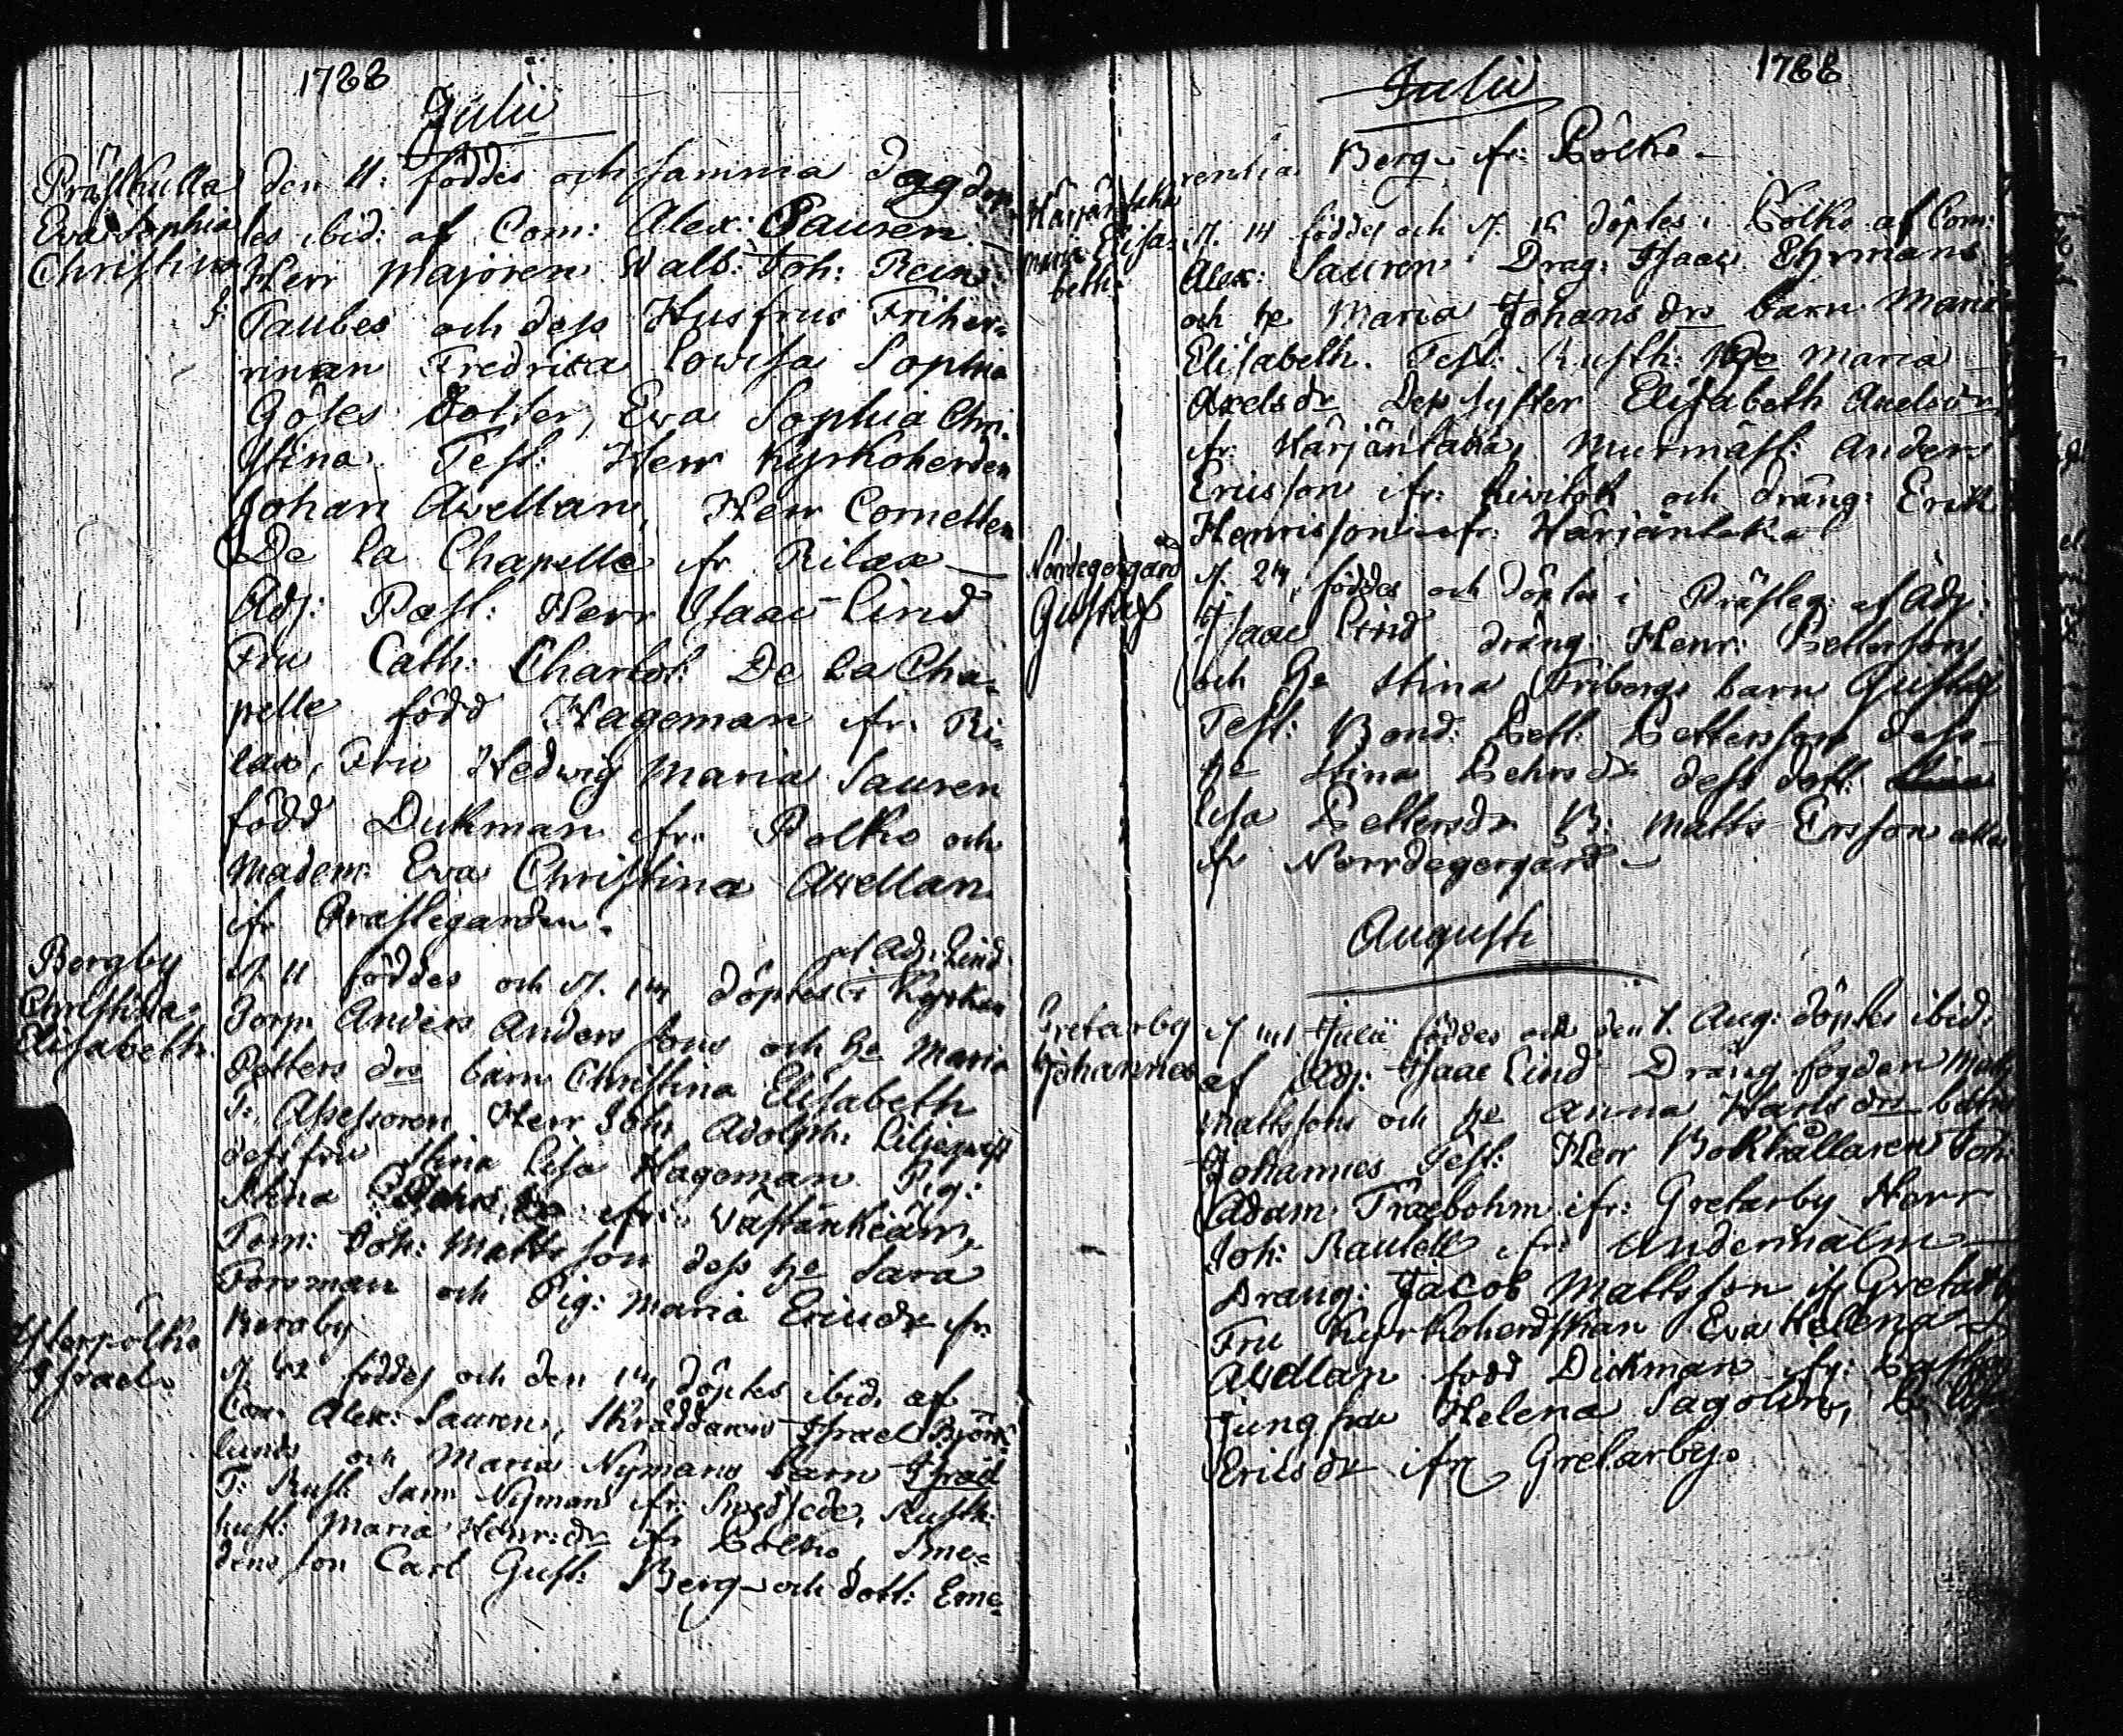 1788
Julii
Prästkulla
Eva Sophia
Christina
den 11: föddes och samma dag döp-
tes ibid: af Com: Alex: Sauren
Herr Majoren Walb: Joh: Rein:
Taubes och dess Husfrus Friher-
rinnan Fredrica Lowisa Sophia
Götes dotter, Eva Sophia Chri-
stina. Test: Herr Kyrkoherden
Johan Avellan, Herr Cornetten
De la Chapelle ifr Rilax
Adj: Past: Herr Isaac Lind
Fru Cath: Charlot: De la Cha-
pelle född Hageman ifr: Ri-
lax, Fru Hedwig Maria Sauren
född Dickman ifr: Polko och
Madem: Eva Christina Avellan
ifr Prästegården.
Bergby
Christina
Elisabeth
af Adj: Lind
d. 11 föddes och d. 14 döptes i Kyrkan
Torp: Anders Anders sons och He Maria
Petters drs barn Christina Elisabeth
T: Assessoren Herr Joh: Adolph: Liljeqvist
dess fru Stina Lisa Hageman Pig:
Stina ifr: Västankiärr,
Tom: Joh: Mattsson dess He Sara
Forsman och Pig: Maria Ericsdr ifr:
Bergby
Österpölko
Israel
d. 12 föddes och den 14 döptes ibid: af
Com: Alex: Sauren, Skräddaren Israel Björk-
lunds och Maria Nymans barn Israel
T: Rust: Sam: Nyman ifr: Smedsede, Rusth:
hust: Maria Henr:dr ifr Polko, Sme-
dens son Carl Gust: Berg och dott: Eme-
1788
Julii
rentia Berg ifr: Pölko
Härjänlaka
Maria Elisa-
beth
d. 14 föddes och d. 15 döptes i Pölko af Com:
Alex: Sauren Drag: Isaac Ehrmans
och He Maria Johans drs barn Maria
Elisabeth. Test: Rusth: Maria
Axelsdr Dess syster Elisabeth Axelsdr
ifr: Härjänlaka, Murmäst: Anders
Ericsson ifr: och dräng: Erik
Henricsson ifr: Härjänlaka
Norrdegergård
Gustaf
d. 24 föddes och döptes i Prästeg: af Adj:
Isaac Lind dräng: Henr: Pettersons
och He Stina Fribergs barn Gustaf
Test: Bond: Pett: Pettersson dess
He Stina Pehrsdr dess dott:
Lisa Pettersdr B: Matts Ersson alla
ifr Norrdegergård
Augusti
Gretarby
Johannes
d. Julii föddes och den 1. Aug: döptes ibid:
af Adj: Isaac Lind Dräng fogden Matts
Mattssons och He Anna Hans drs barn
Johannes Test: Herr Bokhållaren Joh:
Adam Träebohm ifr: Gretarby Herr
Joh: ifr:
Dräng: Jacob Mattsson ifr Gretarby
Fru Kyrkoherdskan Eva Helena
Avellan född Dickman ifr:
Jungfru Helena Sagolin,
Ericsdr ifr Gretarby.